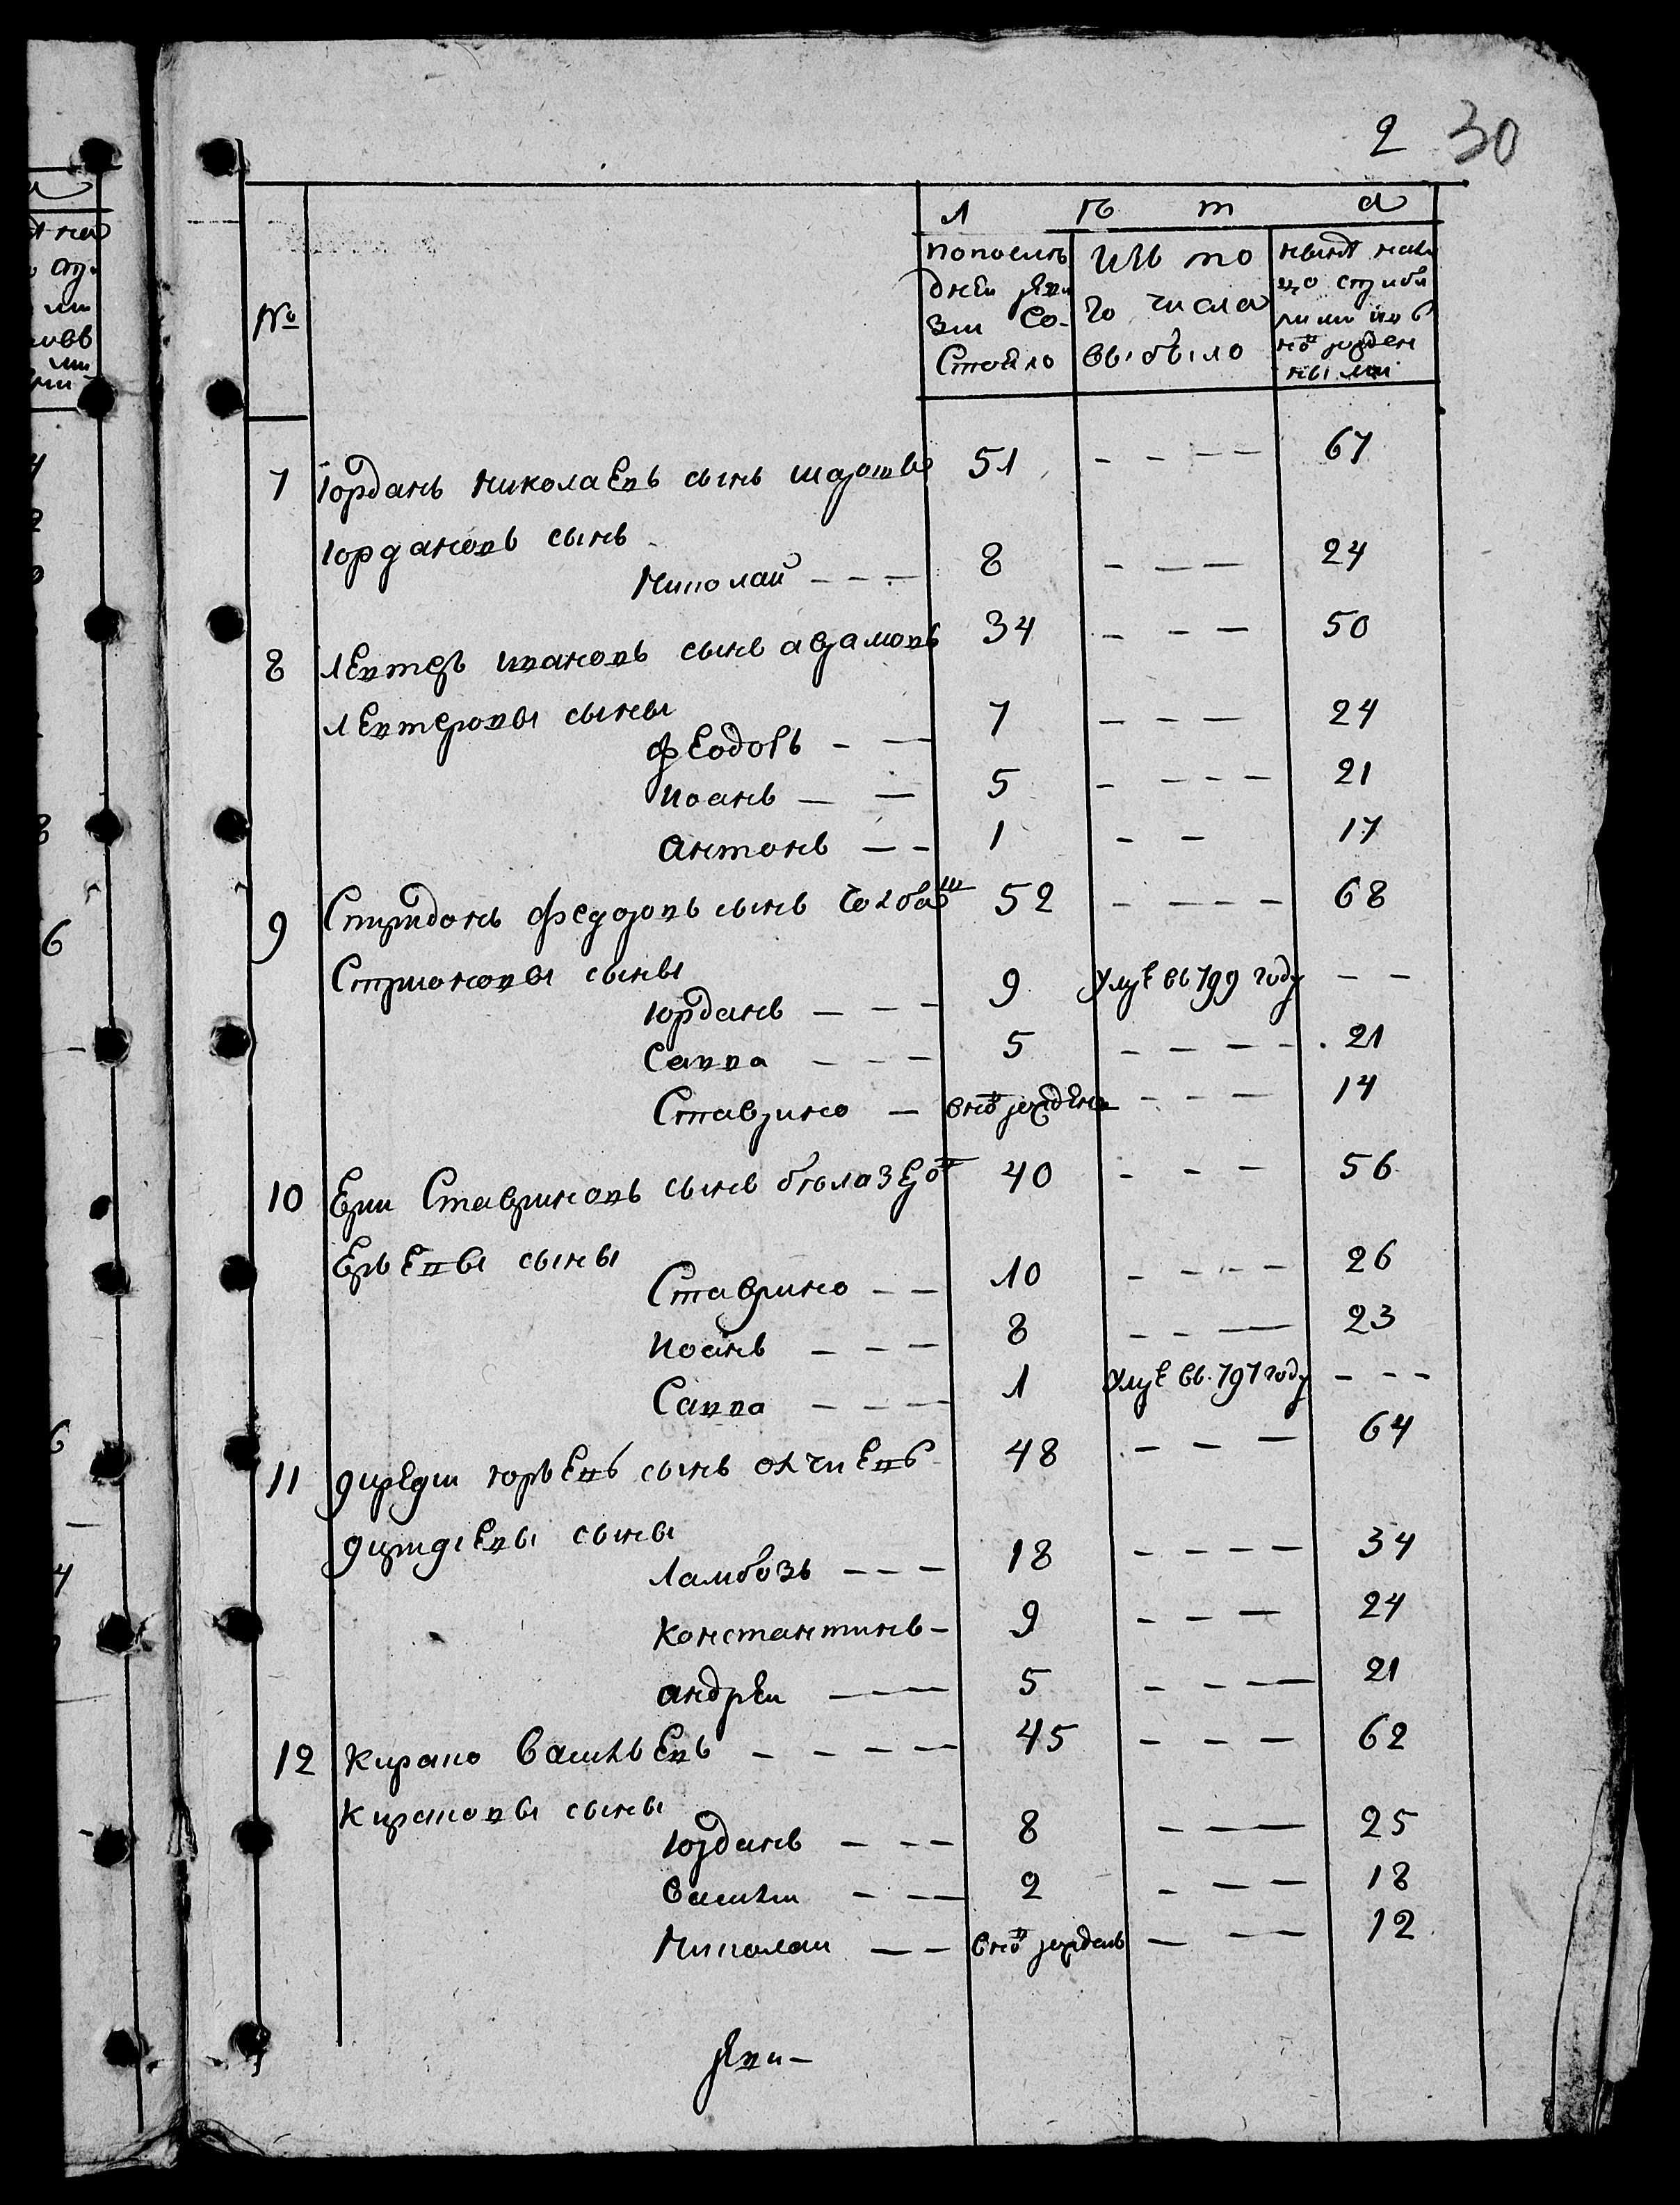 2 30
№
л ѣ т а
По последней ревизии состояло
Изъ того числа выбыло
Ныне на лицо с прибылыми и новорожденными
7 Юрданъ Николаевъ сынъ 51 - - - - 67
Юрдановъ сынъ
Николай - - - 8 - - - 24
8 Левтеръ Ивановъ сынъ Аврамовъ 34 - - - 50
Левтеровы сыны
Феодоръ - - 7 - - - 24
Иоанъ - - 5 - - - - 21
Антонъ - - 1 - - 17
9 Спиридонъ Федоровъ сынъ 52 - - - - 68
Спирионовы сыны
Юрданъ - - - 9 Умре въ 799 году - -
Савва - - - 5 - - - - 21
Ставрино - вновь рожденъ - - - 14
10 Ери Ставриновъ сынъ 40 - - - 56
Ерьевы сыны
Ставрино - - 10 - - - - 26
Иоанъ - - - 8 - - - 23
Савва - - - 1 Умре въ 797 году - - -
11 Диреди Юрьевъ сынъ 48 - - - 64
сыны
Ламбозъ - - - 18 - - - - 34
Константинъ - 9 - - - 24
Андреи - - - 5 - - - 21
12 Кирако Васильевъ - - - - 45 - - - 62
Кираковы сыны
Юрданъ - - - 8 - - - 25
Васили - - - 2 - - - 18
Николаи - - вновь рожденъ - - - 12
Реви-